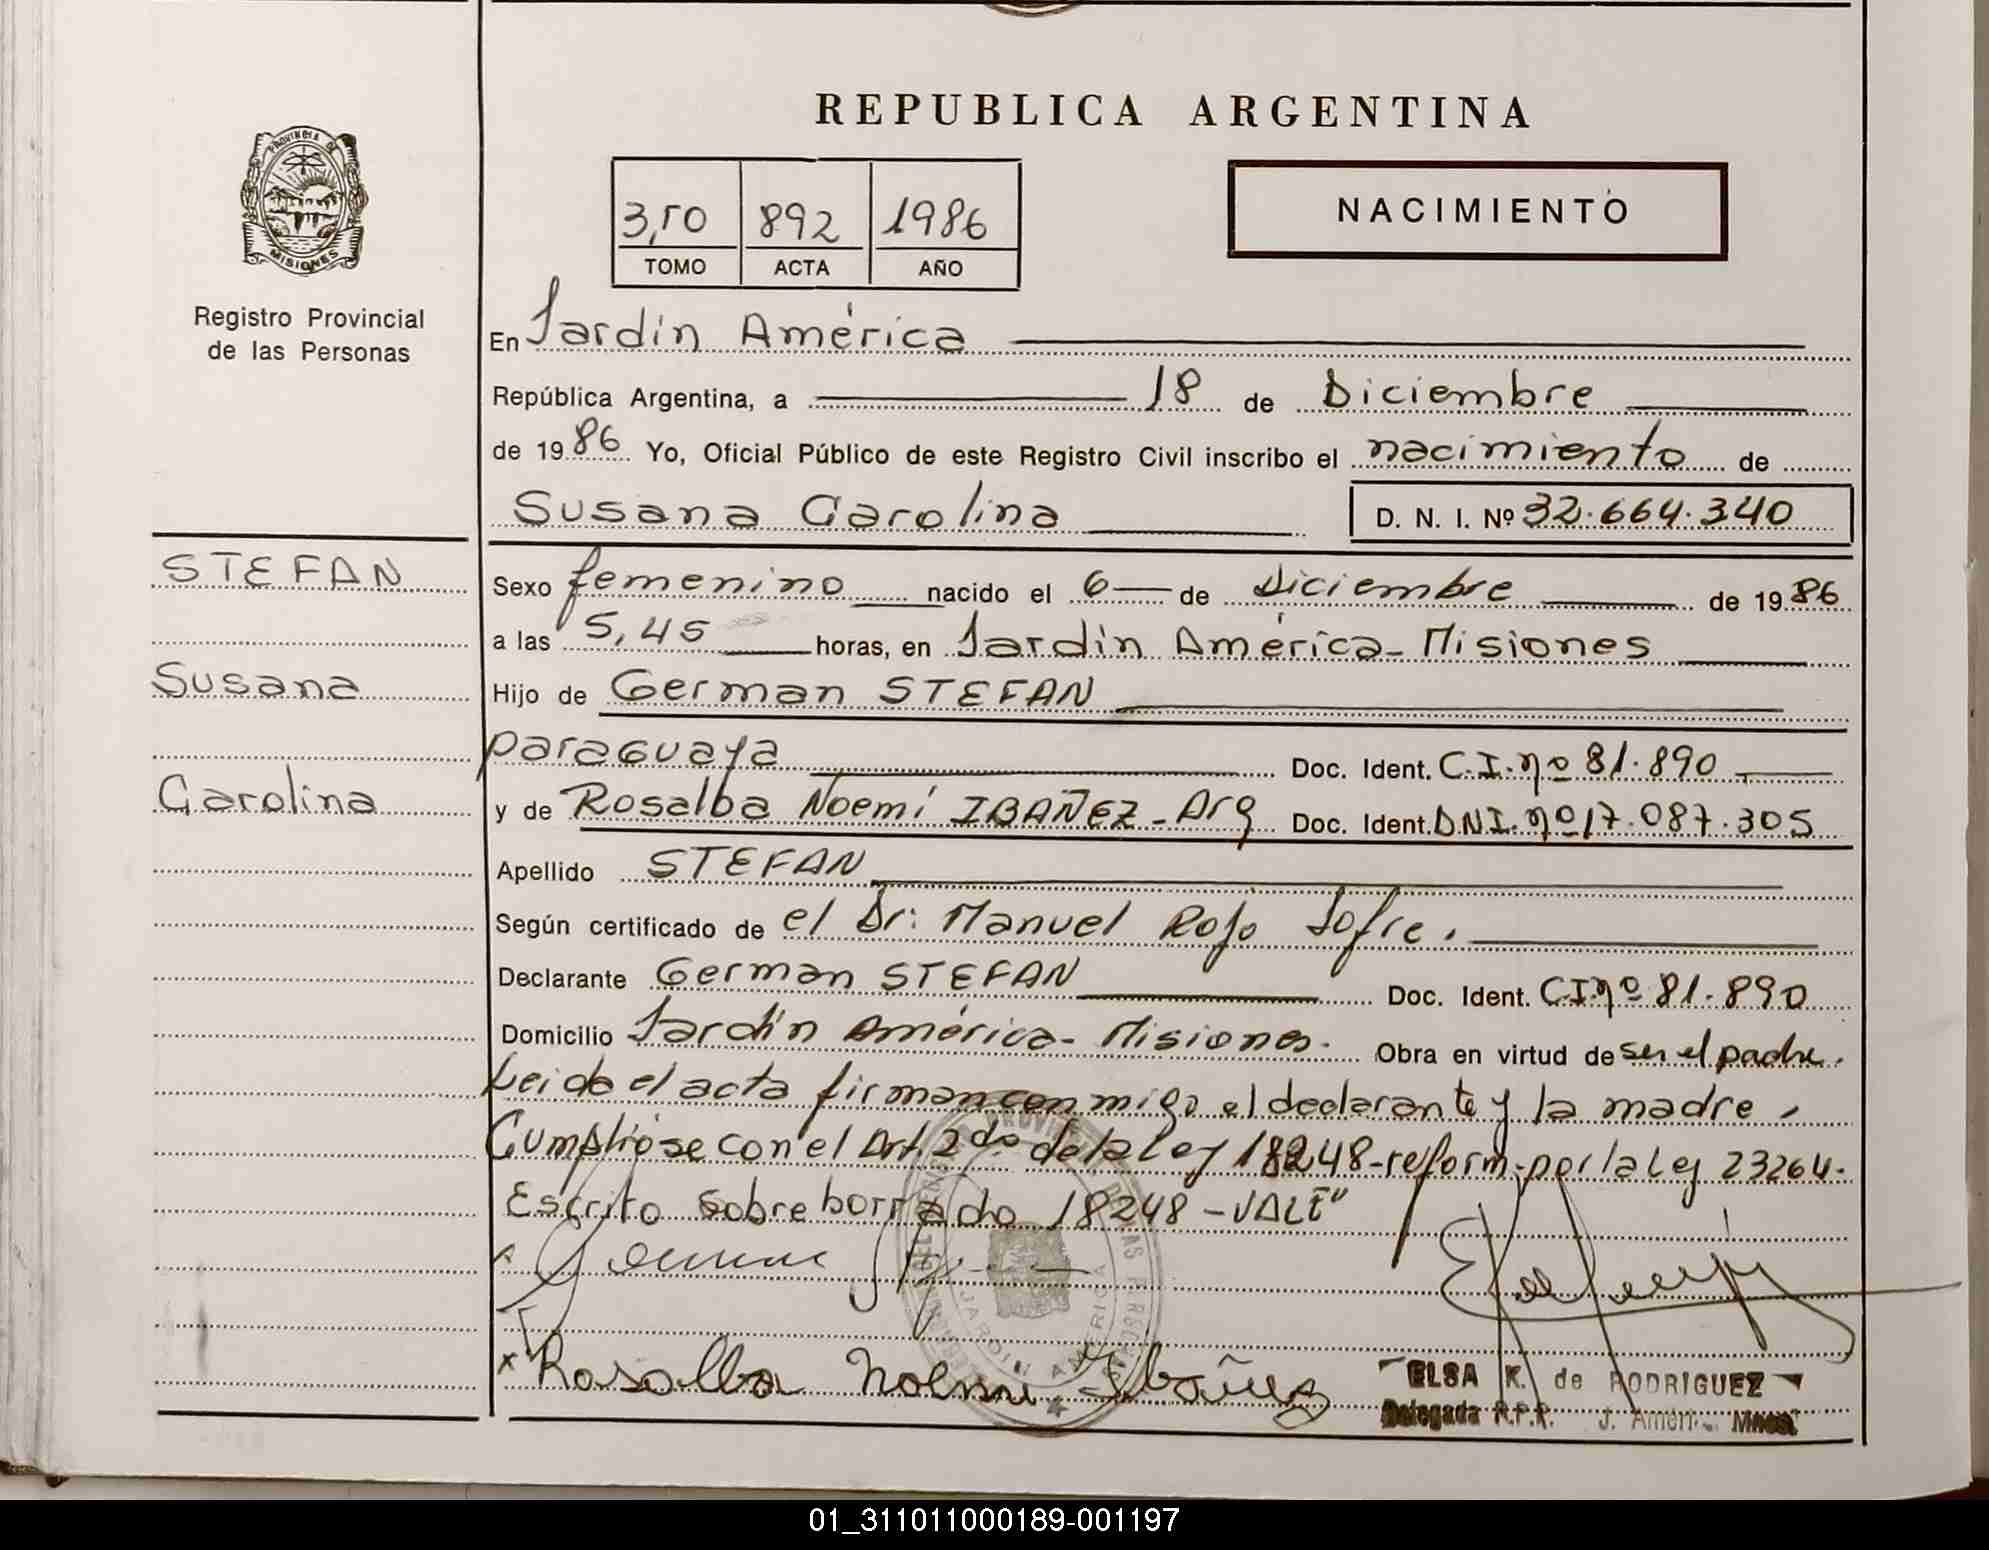 REPUBLICA ARGENTINA
PROVINCIA DE
MISIONES
Registro Provincial
de las Personas
3,50 892 1986
TOMO ACTA AÑO
NACIMIENTO
En Jardín América
República Argentina, a 18 de Diciembre
de 1986 Yo, Oficial Público de este Registro Civil inscribo el nacimiento de
Susana Carolina D. N. I. Nº 32.664.340
STEFAN
Susana
Carolina
Sexo femenino nacido el 6 de Diciembre de 1986
a las 5,45 horas, en Jardín América - Misiones
Hijo de German STEFAN
paraguaya Doc. Ident. C.I. nº 81.890
y de Rosalba Noemí IBAÑEZ - Arg Doc. Ident. D.N.I. nº 17.087.305
Apellido STEFAN
Según certificado de el Dr: Manuel Rojo Jofre.
Declarante German STEFAN Doc. Ident. CI nº 81.890
Domicilio Jardín América - Misiones. Obra en virtud de ser el padre.
Leido el acta firman conmigo el declarante y la madre.
Cumplióse con el Art. 2do de la Ley 18248 - reform. por la Ley 23264.
Escrito sobre borrado 18248 - VALE"
x Rosalba Noemi Ibañez
ELSA K. de RODRIGUEZ
Delegada R.P.P. J. Amér. Mnes.
JARDIN AMERICA
01_311011000189-001197